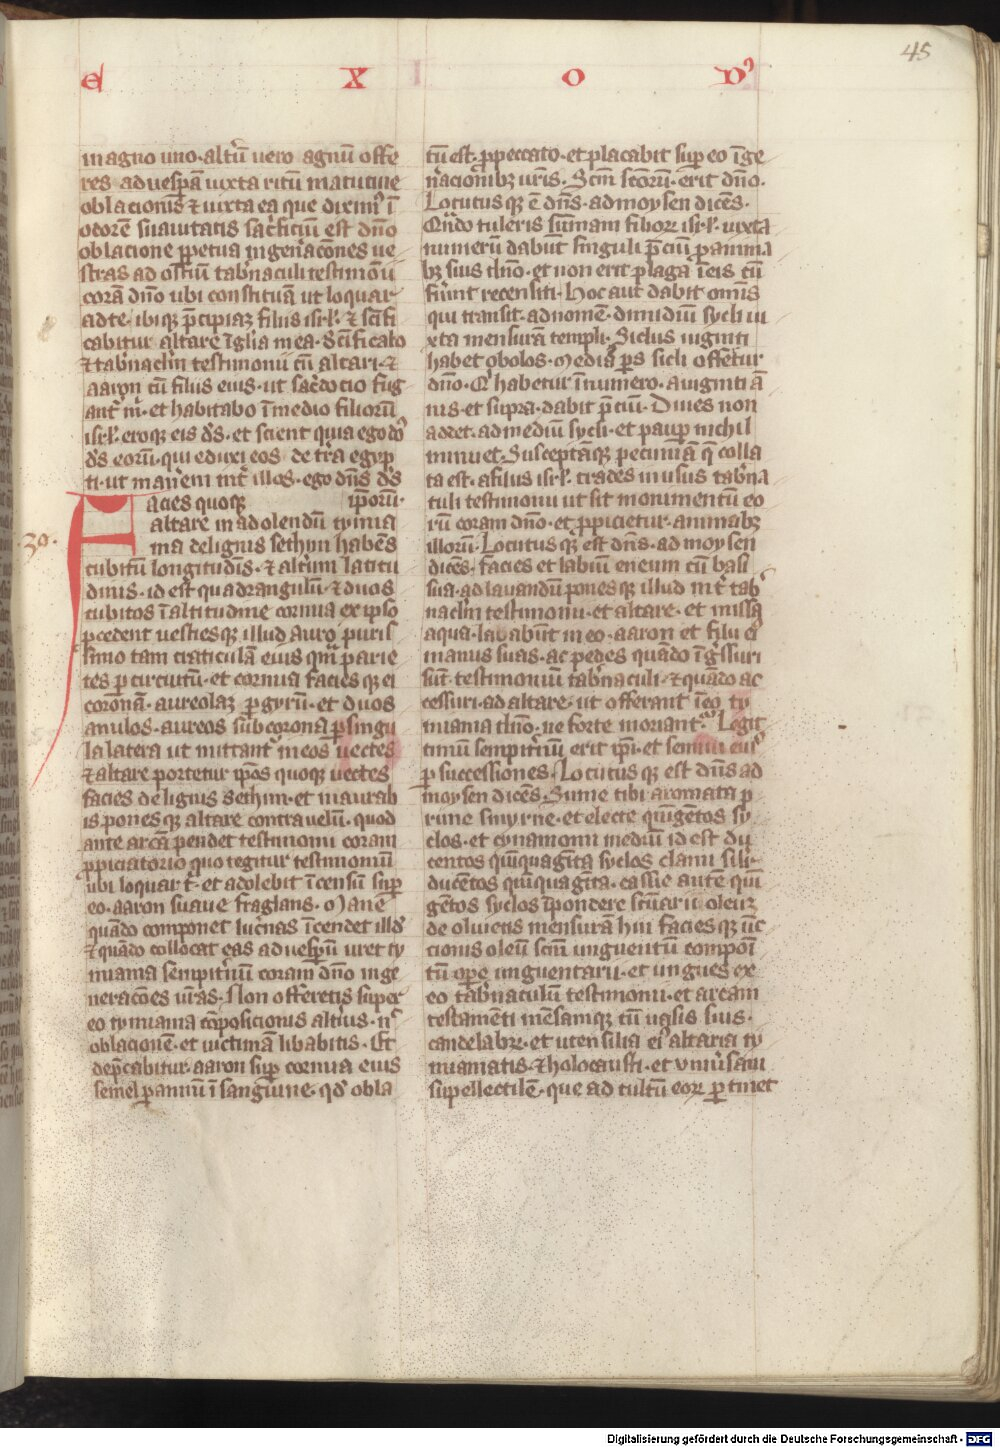 45
E X O D᾽
magno uno · altũ uero agnũ offe
res ad uesp̃am iuxta ritũ matutine
oblacionis ⁊ iuxta ea que diximꝰ ĩ
odorẽ suauitatis sac̃ficiũ est dño
oblacione ꝑpetua in geñacões ue
stras ad ostiũ tab̃naculi testimoñii
corã dño ubi constituã ut loquar
ad te · ibiqꝫ p̃cipiaꝫ filiis isr̃l · ⁊ sc̃ifi
cabitur altare ĩ gl̃ia mea · Sc̃ificabo
⁊ tab̃nacl̃m testimonii cũ altari · ⁊
aaron cũ filiis eius · ut sac̃docio fug
ant̃ m̃ · et habitabo ĩ medio filiorũ
isr̃l · eroqꝫ eis d̃s · et scient quia ego dõ
d̃s eorũ · qui eduxi eos de tr̃a egyp
ti · ut mañem int̃ illos · ego dñs d̃s
ip̃orũ ·
30 ·
Facies quoqꝫ
altare in adolendũ tymia
ma de lignis sethym habẽs
cubitũ longitudĩs · ⁊ altũm latitu
dinis · id est quadrangulũ · ⁊ duos
cubitos ĩ altitudine cornua ex ipso
ꝓcedent uestiesqꝫ illud auro puris
simo tam craticulã eius qm̃ parie
tes ꝑ circuitũ · et cornua facies qꝫ ei
coronã · aureolaꝫ ꝑ gyrũ · et duos
anulos · aureos sub corona ꝑ singu
la latera ut mittant̃ in eos uectes
⁊ altare portetur ip̃os quoqꝫ uectes
facies de lignis sethim · et inaurab
is ponesqꝫ altare contra uelũ · quod
ante arcã pendet testimonii coram
ꝓpiciatorio quo tegitur testimoniũ
ubi loquar t̃ · et adolebit ĩcensũ sup̱
eo · aaron suaue fraglans · Mane
quãdo componet luc̃nas ĩcendet illd᾽
⁊ quãdo collocat eas ad uesp̱ũ uret ty
miama sempit̃nũ coram dño in ge
neracões ur̃as · Non offeretis super
eo tymiama cõposicionis alt̃ius · nͨ
oblacionẽ · et uictimã libabitis · Et
dep̃cabitur · aaron sup̱ cornua eius
semel ꝑ annũ ĩ sanguine · qd᾽ obla
tũ est · ꝓ peccato · et placabit sup̱ eo ĩ ge
ñacionibꝫ ur̃is · Scm̃ scõrũ · erit dño ·
Locutus qꝫ ẽ dñs · ad moysen dicẽs ·
Qñdo tuleris sum̃am filiorꝫ isr̃l · iuxta
numerũ dabũt singuli p̃ciũ ꝓ anima
bꝫ suis dño · et non erit plaga ĩ eis cũ
fũint recensiti · Hoc aut̃ dabit omĩs
qui transit · ad nomẽ · dimidiũ sycli iu
xta mensurã templi · Siclus uiginti
habet obolos · Media p̃s sicli offet̃ur
dño · Qͥ habetur ĩ numero · a uiginti ã
nis · et supra · dabit p̃ciũ · Diues non
addet · ad mediũ sycli · et paup̱ nichil
minuet · Susceptãqꝫ pecuniã q̃ colla
ta est · a filiis isr̃l · trades in usus tab̃na
culi testimonii ut sit monimentũ eo
rũ coram dño · et ꝓpicietur · animabꝫ
illorũ · Locutus qꝫ est dñs · ad moysen
dicẽs · facies et labiũ eneum cũ basi
sua · ad lauandũ ponesqꝫ illud int̃ tab᾽
nacl̃m testimonii · et altare · et missa
aqua · lababũt in eo · aaron et filii eiꝰ
manus suas · ac pedes quãdo ĩg̃ssuri
sũt · testimoniũ tab̃naculi · ⁊ quãdo ac
cessuri · ad altare · ut offerant ĩ eo ty
miama dño · ne forte moriant̃ · Legit
timũ sempit̃nũ erit ip̃i · et semini eiusͥ
ꝑ successiones · Locutus qꝫ est dñs ad
moysen dicẽs · Sume tibi aromata p
rime smyrne · et electe quĩgẽtos sy
clos · et cynamomi mediũ id est du
centos quĩquagĩta syclos clami siłr
ducẽtos quĩquagĩta · cassie autẽ quĩ
gẽtos syclos ĩ pondere sc̃uarii oleiꝫ
de oliuetis mensurã hin faciesqꝫ ũc
tionis oleũ sc̃m unguentũ compoĩ
tũ ope unguentarii · et ungues ex
eo tab̃naculũ testimonii · et arcam
testamẽti mẽsamqꝫ cũ uasis suis ·
candelabrꝫ · et utensilia eiꝰ altaria ty
miamatis · ⁊ holocausti · et uniũsam
supellectilẽ · que ad cultũ eorꝫ ꝑtinet
Digitalisierung gefördert durch die Deutsche Forschungsgemeinschaft - DFG